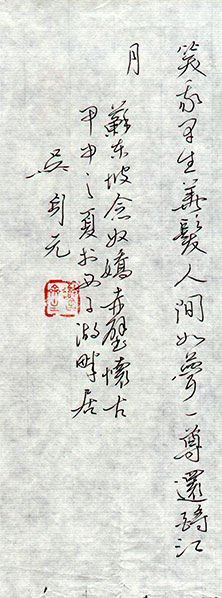 笑我早生華髮人間如夢一尊還酹江
月
蘇東坡念奴嬌赤壁懷古
甲申之夏於西子湖畔居
吳劍元